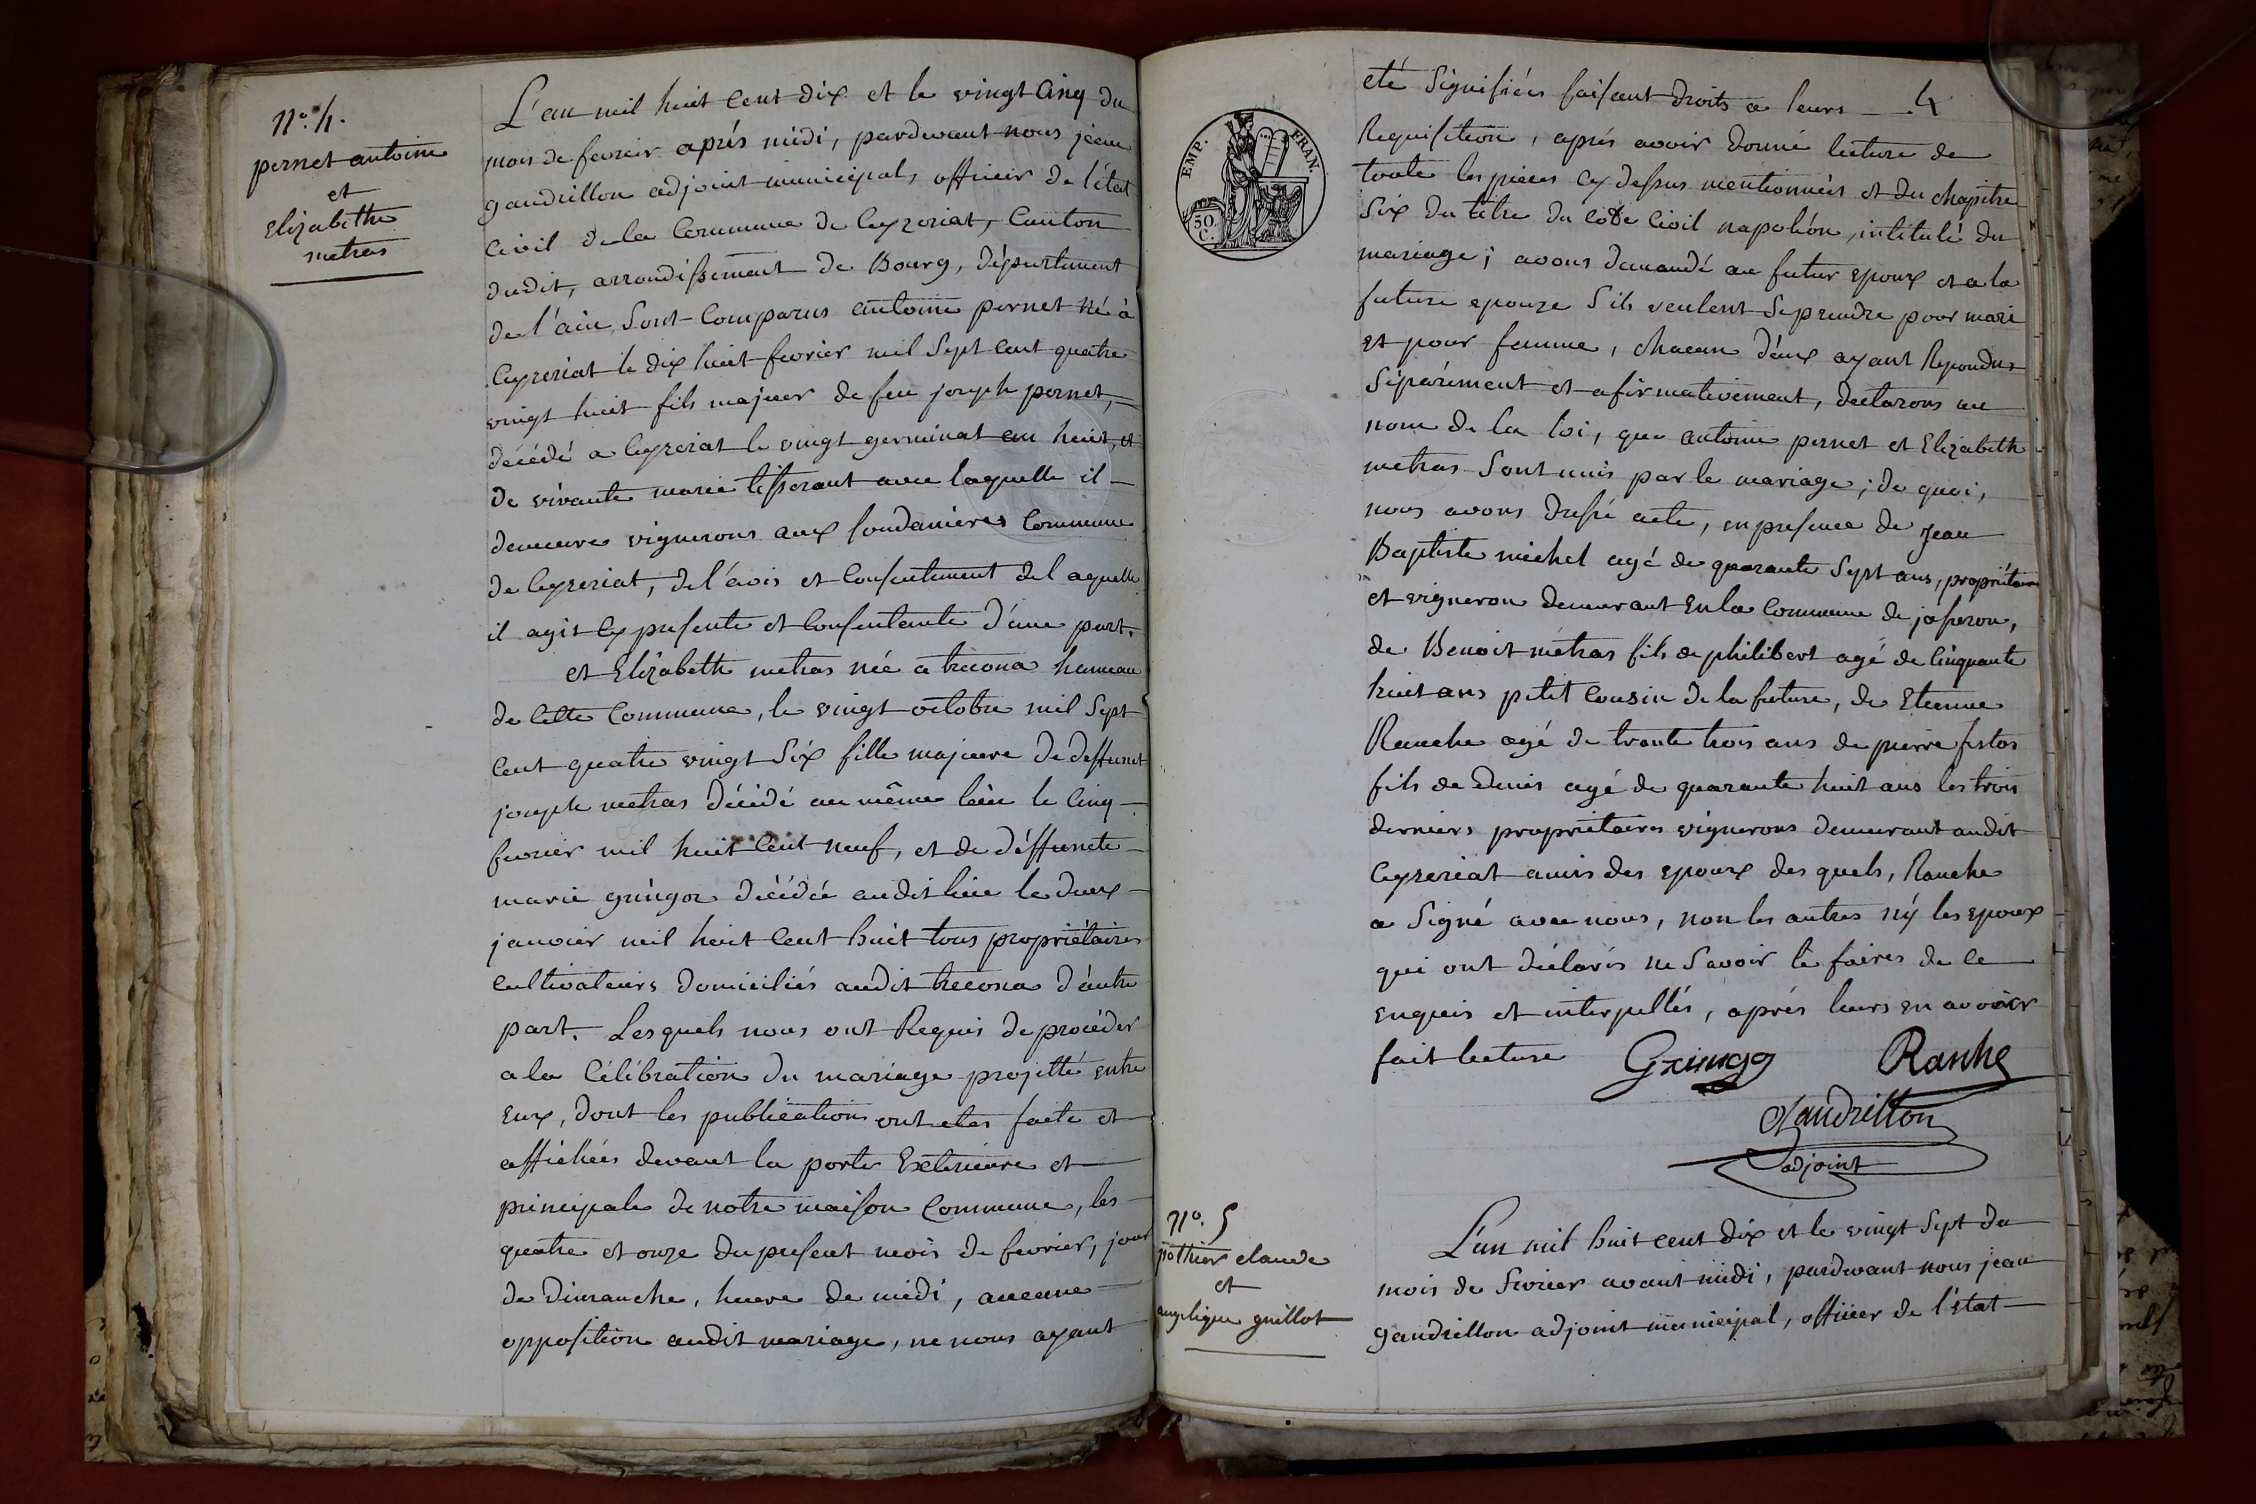 N.° 4.
pernet antoine
et
Elizabethe
metras
L'an mil huit Cent dix et le vingt Cinq du
mois de fevrier aprés midi, pardevant nous jean
gaudrillon adjoint municipal, officier de l'état
Civil de la Commune de Ceyzeriat, Canton
dudit, arrondissement de Bourg, département
de l'ain, Sont Comparus antoine pernet né à
Ceyzeriat le dix huit fevrier mil Sept Cent quatre
vingt huit fils majeur de feu joseph pernet,
décédé a Ceyzeriat le vingt germinal an huit, et
de vivante marie tisserant avec laquelle il
demeure vignerons aux soudanieres Commune
de Ceyzeriat, de l'avis et Consentement de laquelle
il agit Cy presente et Consentante d'une part.
et Elizabeth metras née a treconas hameau
de Cette Commune, le vingt octobre mil Sept
Cent quatre vingt Six fille majeure de deffunct
joseph metras décédé au même lieu le Cinq
fevrier mil huit Cent neuf, et de déffuncte
marie gringoz décédée audit lieu le deux
janvier mil huit Cent huit tous propriétaires
Cultivateurs domiciliés audit treconas d'autre
part. Lesquels nous ont Requis de procéder
a la Célébration du mariage projetté entre
Eux, dont les publications ont etés faite et
affichées devant la porte Extérieure et
principale de notre maison Commune, les
quatre et onze du present mois de fevrier, jour
de Dimanche, heure de midi, aucune
opposition audit mariage, ne nous ayant
EMP. FRAN.
50 C.
4
eté Signifiées faisant droits a leurs
Requisition, aprés avoir donné lecture de
toute les pieces Cy dessus mentionnées et du chapitre
Six du titre du code Civil napoléon, intitulé du
mariage; avons demandé au futur epoux et a la
future epouze S'ils veulent Se prendre pour mari
et pour femme, chacun d'eux ayant Repondus
Séparément et afirmativement, declarons au
nom de la loi, que antoine pernet et Elizabeth
metras Sont unis par le mariage; de quoi,
nous avons dressé acte, en presence de jean
Baptiste michel agé de quarante Sept ans, propriétaire
et vigneron demeurant en la Commune de jasseron,
de Benoit métras fils de philibert agé de Cinquante
huit ans petit Cousin de la future, de Etienne
Ranche agé de trante trois ans de pierre
fils de Denis agé de quarante huit ans les trois
derniers propriétaires vignerons demeurant audit
Ceyzeriat amis des epoux des quels, Ranche
a Signé avec nous, non les autres ny les epoux
qui ont déclarés ne Savoir le faires de ce
enquis et interpellés, aprés leurs en avoir
fait lecture
Ranche
Gaudrillon
adjoint
N°. 5
pothier claude
et
angelique guillot
L'an mil huit cent dix et le vingt Sept du
mois de fevrier avant midi, pardevant nous jean
gaudrillon adjoint municipal, officier de l'état